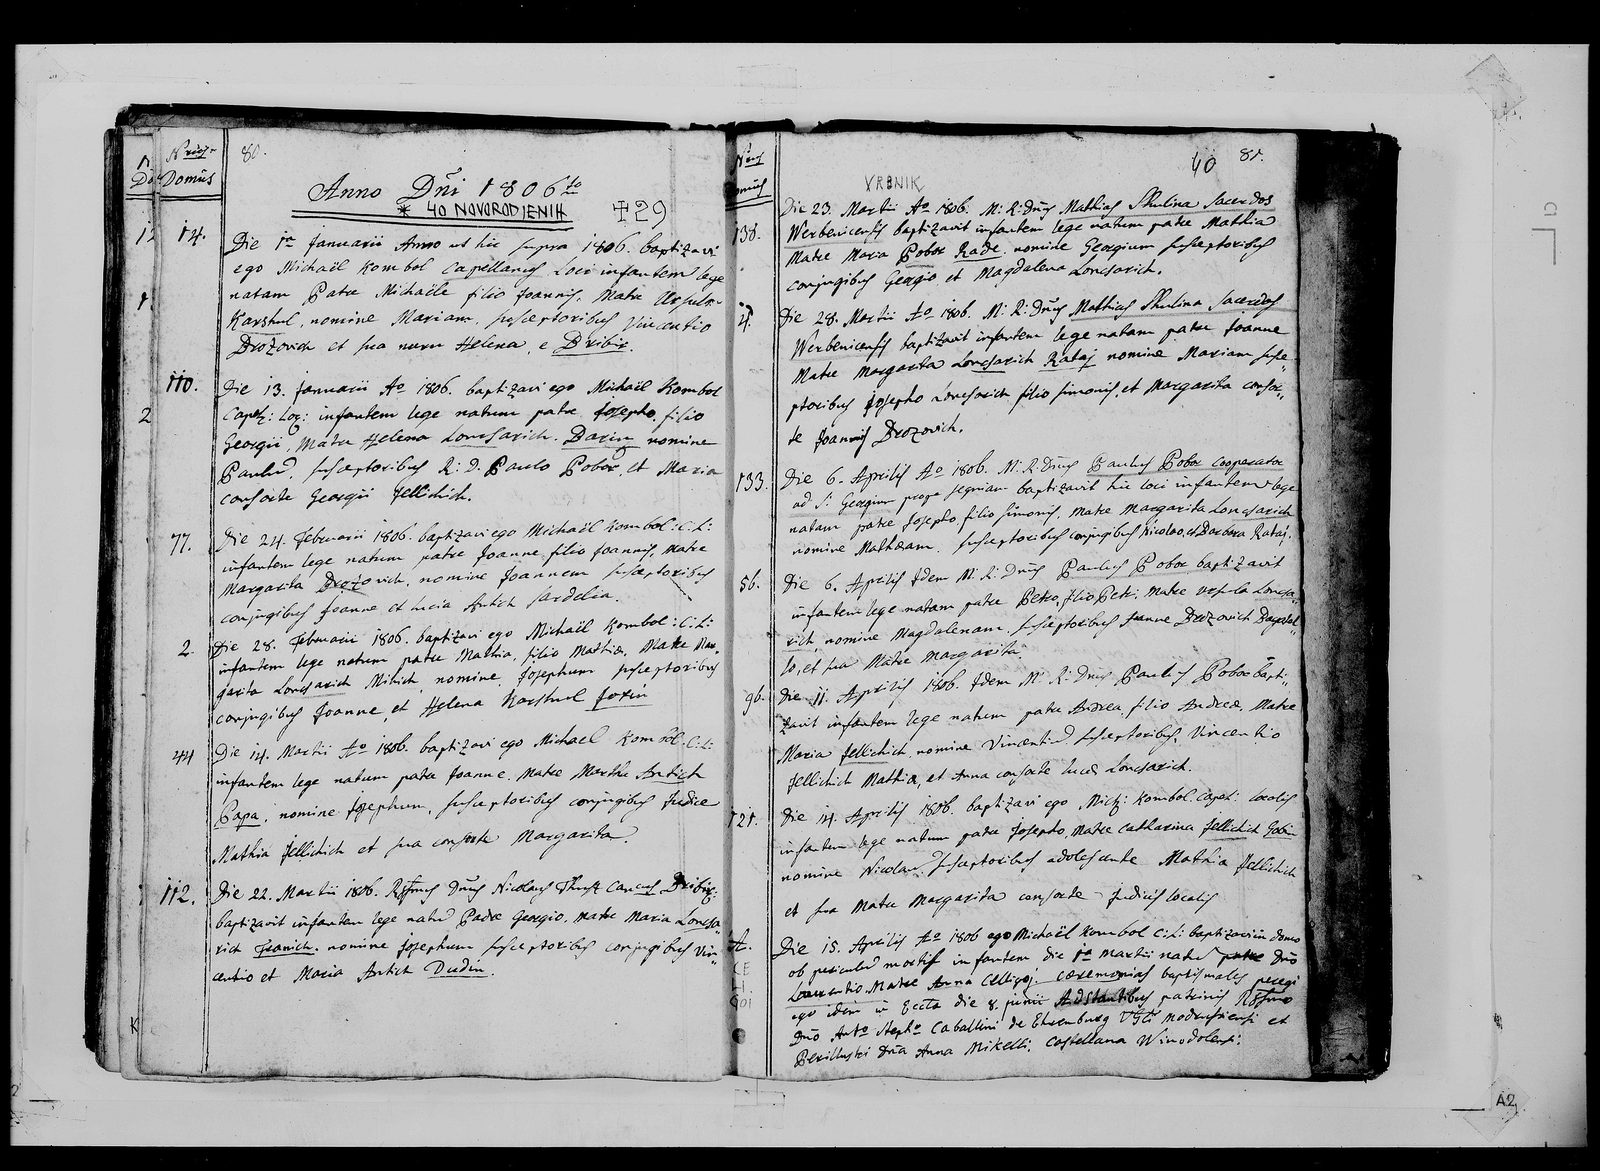 Nrus
Domus
80.
Anno Dñi 1806to
* 40 NOVORODJENIH ‡29
14.
Die 1a Januarii Anno ut hic supra 1806. baptizavi
ego Michaël Kombol Capellanus Loci infantem lege
natam Patre Michaële filio Joannis, Matre Ursula
Karshul, nomine Mariam, susceptoribus Vincentio
Drozovich et sua nuru Helena, e Bribir.
110.
Die 13. Januarii Ao 1806. baptizavi ego Michaël Kombol
Capel: Loc: infantem lege natum patre Josepho, filio
Georgii, Matre Helena Loncsarich Darin nomine
Paulum, susceptoribus R: D. Paulo Pobor, et Maria
consorte Georgii Jellichich.
77.
Die 24. Februarii 1806. baptizavi ego Michaël Kombol: C: L:
infantem lege natum patre Joanne filio Joannis, Matre
Margarita Drozovich, nomine Joannem susceptoribus
conjugibus Joanne et Lucia Antich Sardelia.
2.
Die 28. Februarii 1806. baptizavi ego Michaël Kombol: C: L:
infantem lege natum patre Mathia, filio Mathiæ, Matre Mar„
garita Loncsarich Mikich, nomine, Josephum susceptoribus
conjugibus Joanne, et Helena Karshul
44
Die 14. Martii Ao 1806. baptizavi ego Michael Kombol. C: L:
infantem lege natum patre Joanne, Matre Martha Antich
Papa, nomine Josephum, susceptoribus conjugibus Judice
Mathia Jellichich et sua consorte Margarita.
112.
Die 22. Martii 1806. Rssmus Dnus Nicolaus Canus Bribir:
baptizavit infantem lege natum Padre Georgio, Matre Maria Loncsa„
rich Franich, nomine Josephum susceptoribus conjugibus Vin„
centio et Maria Antich Dudin.
Nrus
Domus
40 81.
VRBNIK
138.
Die 23. Martii Ao 1806. M: R: Dnus Mathias Skulina Sacerdos
Werbenicensis baptizavit infantem lege natum patre Mathia
Matre Maria Pobor Rade nomine Georgium susceptoribus
conjugibus Georgio et Magdalena Loncsarich.
4.
Die 28. Martii Ao 1806. M: R: Dnus Mathias Skulina Sacerdos
Werbenicensis baptizavit infantem lege natam patre Joanne
Matre Margarita Loncsarich Rataj nomine Mariam susce„
ptoribus Josepho Loncsarich filio Simonis, et Margarita consor„
te Joannis Drozovich.
133.
Die 6. Aprilis Ao 1806. M: R: Dnus Paulus Pobor cooperator
ad S: Georgium prope Segniam baptizavit hic loci infantem lege
natam patre Josepho filio Simonis, Matre Margarita Loncsarich
nomine Matheam. susceptoribus conjugibus Nicolao, et Barbara Rataj.
56.
Die 6. Aprilis Idem M: R: Dnus Paulus Pobor baptizavit
infantem lege natam patre Petro, filio Petri, Matre Ursula Loncsa„
rich, nomine Magdalenam. susceptoribus Joanne Drozovich
lo, et sua Matre Margarita.
96.
Die 11. Aprilis 1806. Idem M: R: Dnus Paulus Pobor bapti„
zavit infantem lege natum patre Andrea, filio Andreæ, Matre
Maria Jellichich nomine Vincentium susceptoribus, Vincentio
Jellichich Mathiæ, et Anna consorte Lucæ Loncsarich.
121.
Die 14. Aprilis 1806. baptizavi ego Mich: Kombol. Capel: Localis
infantem lege natum patre Josepho, Matre Catharina Jellichich Gabin
nomine Nicolaum susceptoribus adolescente Mathia Jellichich
et sua Matre Margarita consorte Judicis localis
A.
CE
LI
GOI
Die 15. Aprilis Ao 1806 ego Michaël Kombol C: L: baptizavi in domo
ob periculum mortis infantem die 1a Martii natum patre Dño
Laurentio, Matre Anna Celligoj. cæremonias baptismales peregi
ego idem in Eccla die 8. Junii Adstantibus patrinis Rssmo
Dño Anto Stepho Caballini de Ehrenburg Modrusiensi et
Perillustri Dña Anna Mikelli, Castellana Winodolensi.
K
A2